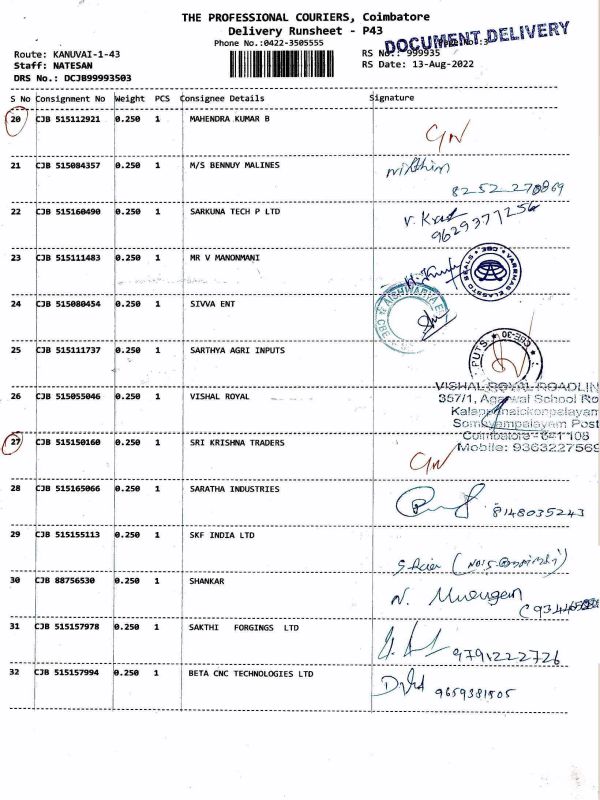 THE PROFESSIONAL COURIERS, Coimbatore
Delivery Runsheet - P43
Phone No.:0422-3505555
DOCUMENT DELIVERY
Route: KANUVAI-1-43
RS No.: 999935
Staff: NATESAN
RS Date: 13-Aug-2022
DRS No.: DCJB99993503
S No Consignment No Weight PCS Consignee Details Signature
20 CJB 515112921 0.250 1 MAHENDRA KUMAR B
21 CJB 515084357 0.250 1 M/S BENNUY MALINES
8252 270869
22 CJB 515160490 0.250 1 SARKUNA TECH P LTD
9629377256
23 CJB 515111483 0.250 1 MR V MANONMANI
24 CJB 515080454 0.250 1 SIVVA ENT
25 CJB 515111737 0.250 1 SARTHYA AGRI INPUTS
PUTS
CBE-30
VISHAL ROYAL ROADLIN
26 CJB 515055046 0.250 1 VISHAL ROYAL
357/1, Agarwal School Ro
Somayampalayam Post
Coimbatore-641108
27 CJB 515150160 0.250 1 SRI KRISHNA TRADERS
Mobile: 9363227569
28 CJB 515165066 0.250 1 SARATHA INDUSTRIES
8148035243
29 CJB 515155113 0.250 1 SKF INDIA LTD
30 CJB 88756530 0.250 1 SHANKAR
N. Murugan
31 CJB 515157978 0.250 1 SAKTHI FORGINGS LTD
9791222726
32 CJB 515157994 0.250 1 BETA CNC TECHNOLOGIES LTD
9659381505